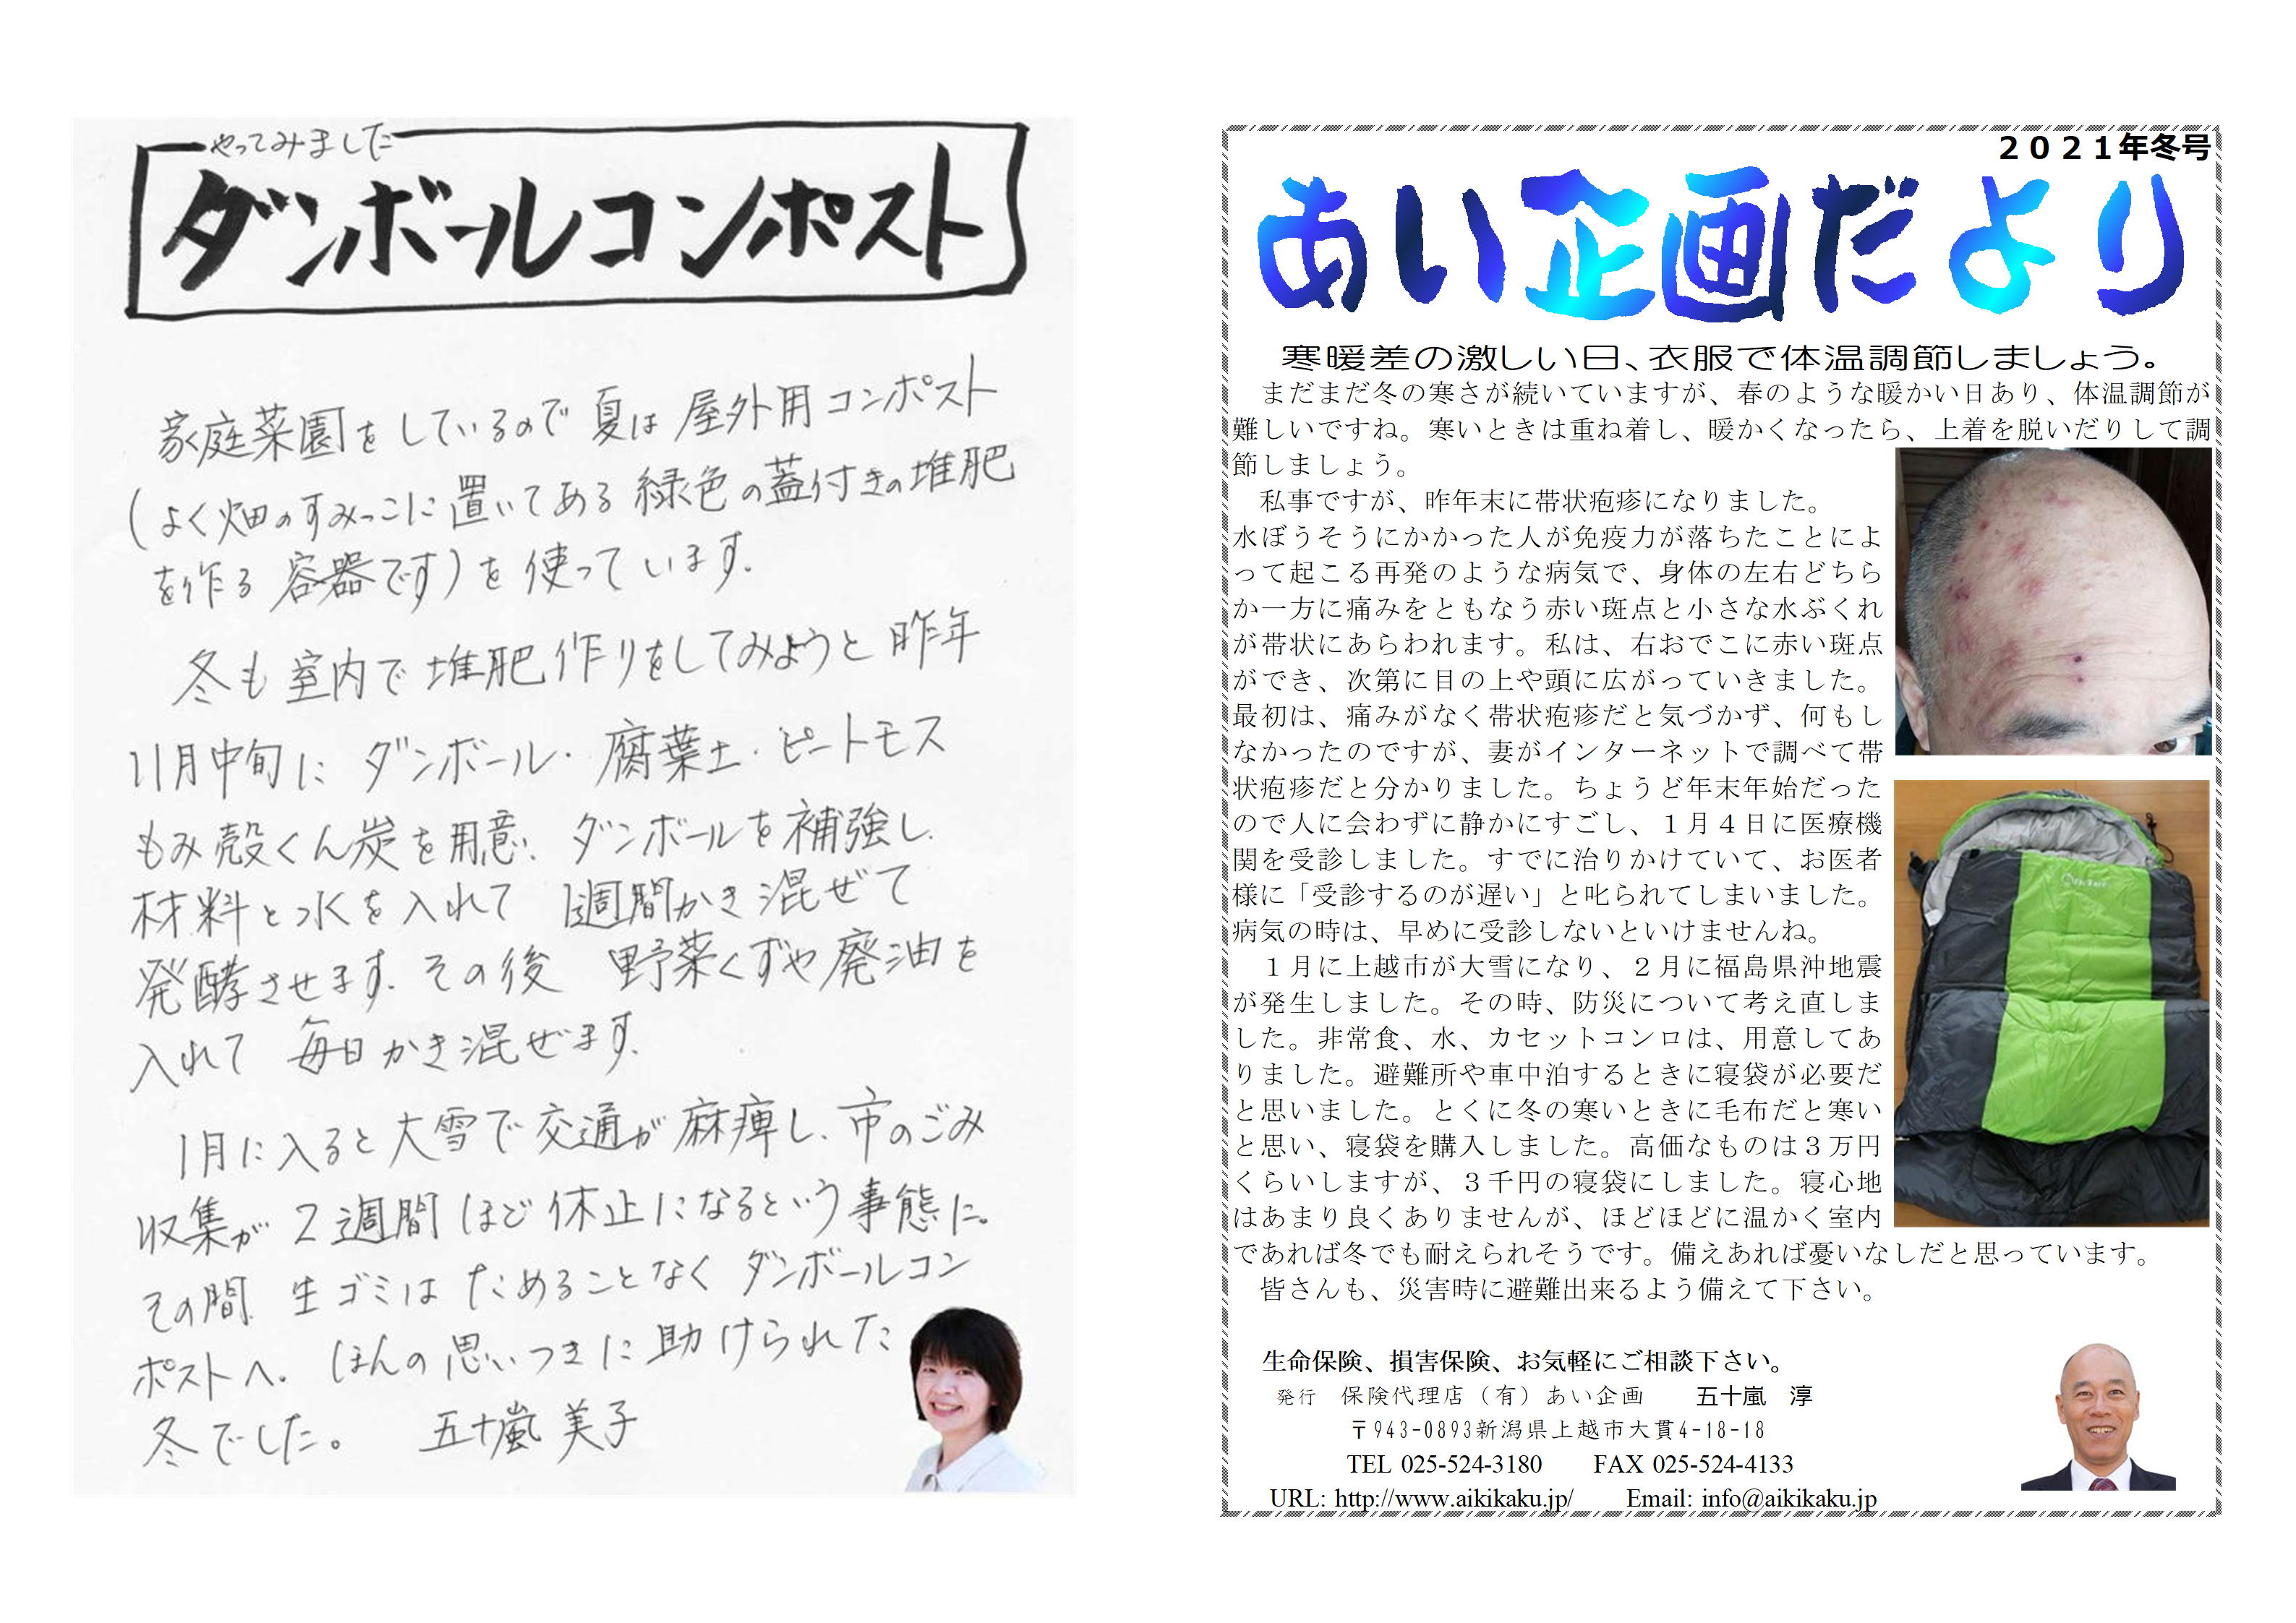 やってみました
ダンボールコンポスト
家庭菜園をしているので夏は屋外用コンポスト
(よく畑のすみっこに置いてある緑色の蓋付きの堆肥
を作る容器です)を使っています。
冬も室内で堆肥作りをしてみようと昨年
11月中旬にダンボール・腐葉土・ピートモス
もみ殻くん炭を用意、ダンボールを補強し、
材料と水を入れて1週間かき混ぜて
発酵させます。その後野菜くずや廃油を
入れて毎日かき混ぜます。
1月に入ると大雪で交通が麻痺し、市のごみ
収集が2週間ほど休止になるという事態に。
その間、生ゴミはためることなくダンボールコン
ポストへ。ほんの思いつきに助けられた
冬でした。 五十嵐美子
2021年冬号
あい企画だより
寒暖差の激しい日、衣服で体温調節しましょう。
まだまだ冬の寒さが続いていますが、春のような暖かい日あり、体温調節が
難しいですね。寒いときは重ね着し、暖かくなったら、上着を脱いだりして調
節しましょう。
私事ですが、昨年末に帯状疱疹になりました。
水ぼうそうにかかった人が免疫力が落ちたことによ
って起こる再発のような病気で、身体の左右どちら
か一方に痛みをともなう赤い斑点と小さな水ぶくれ
が帯状にあらわれます。私は、右おでこに赤い斑点
ができ、次第に目の上や頭に広がっていきました。
最初は、痛みがなく帯状疱疹だと気づかず、何もし
なかったのですが、妻がインターネットで調べて帯
状疱疹だと分かりました。ちょうど年末年始だった
ので人に会わずに静かにすごし、1月4日に医療機
関を受診しました。すでに治りかけていて、お医者
様に「受診するのが遅い」と叱られてしまいました。
病気の時は、早めに受診しないといけませんね。
1月に上越市が大雪になり、2月に福島県沖地震
が発生しました。その時、防災について考え直しま
した。非常食、水、カセットコンロは、用意してあ
りました。避難所や車中泊するときに寝袋が必要だ
と思いました。とくに冬の寒いときに毛布だと寒い
と思い、寝袋を購入しました。高価なものは3万円
くらいしますが、3千円の寝袋にしました。寝心地
はあまり良くありませんが、ほどほどに温かく室内
であれば冬でも耐えられそうです。備えあれば憂いなしだと思っています。
皆さんも、災害時に避難出来るよう備えて下さい。
生命保険、損害保険、お気軽にご相談下さい。
発行 保険代理店（有）あい企画 五十嵐 淳
〒943-0893新潟県上越市大貫4-18-18
TEL 025-524-3180 FAX 025-524-4133
URL: http://www.aikikaku.jp/ Email: info@aikikaku.jp